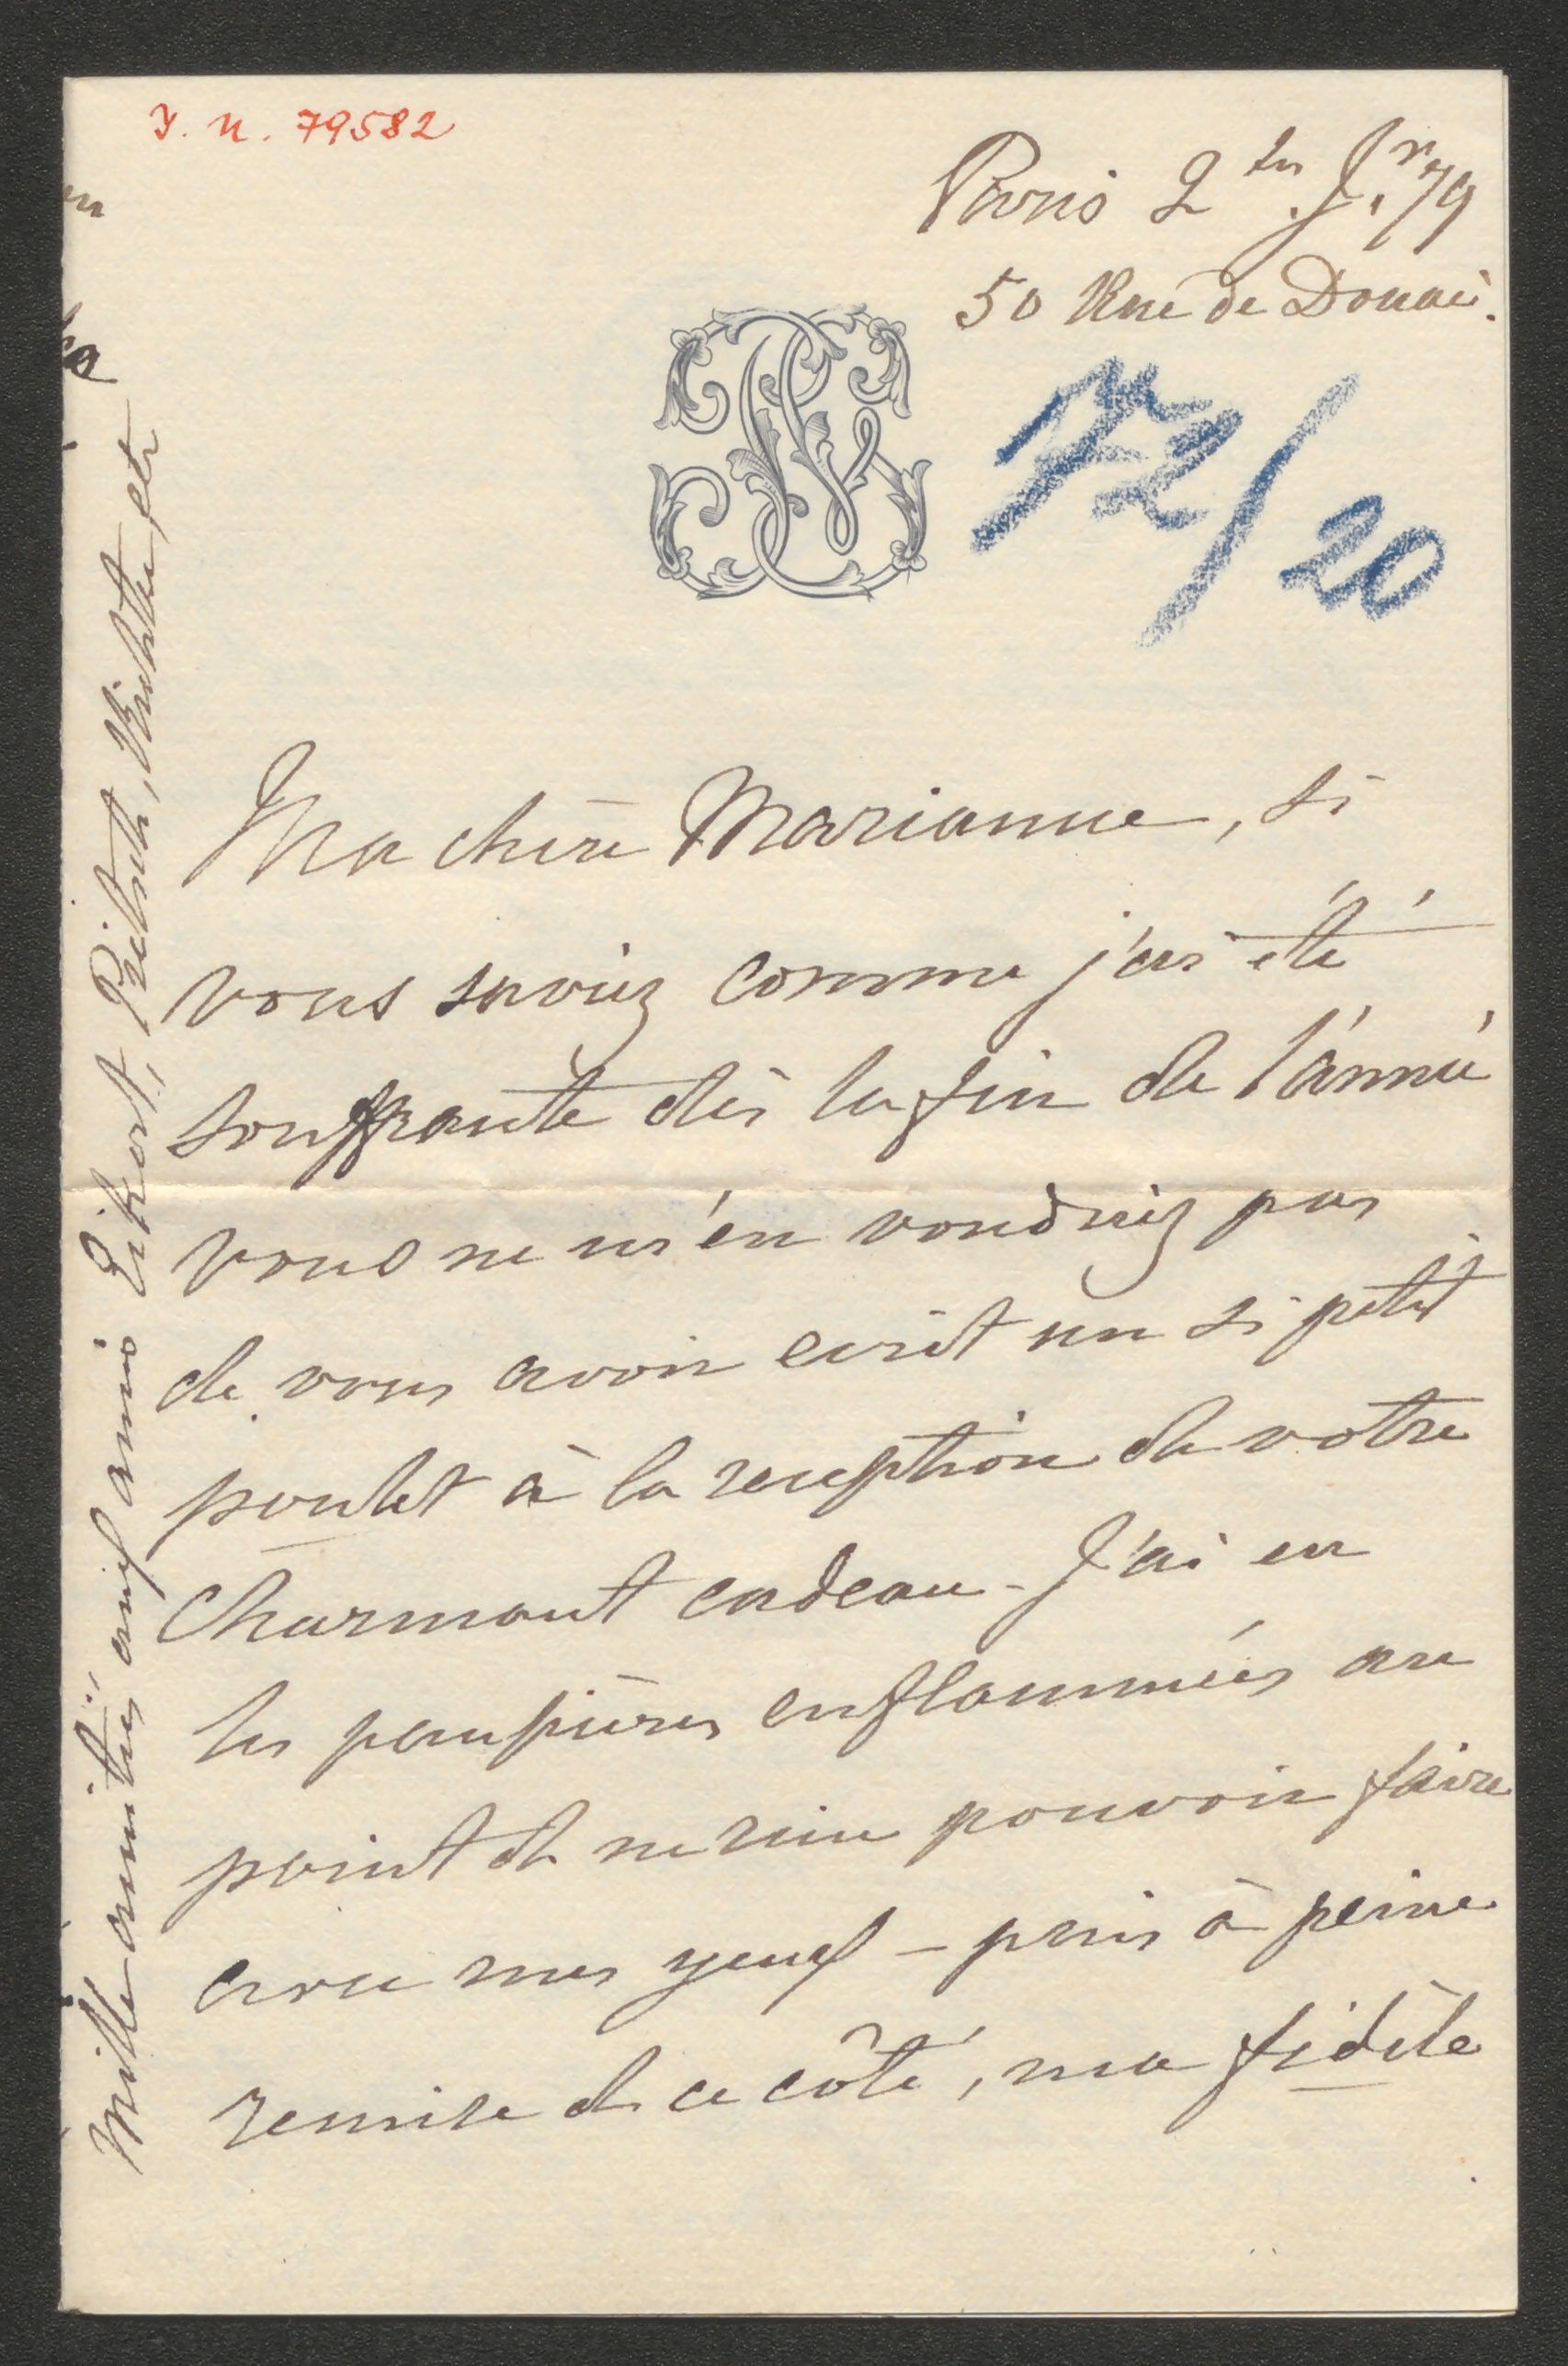 I. N. 79582
Paris 2ten Jr. 79
50 Rue de Douai.
72/20
Ma chère Marianne, si
vous saviez comme j'ai été
souffrante dès la fin de l'année
vous ne m'en voudriez pas
de vous avoir ecrit un si petit
poulet à la reception de votre
charmant cadeau - J'ai eu
les paupières enflammées au
point de ne rien pouvoir faire
avec mes yeux - puis à peine
remise de ce côté, ma fidèle
Mille amitiés aux amis Eckert,